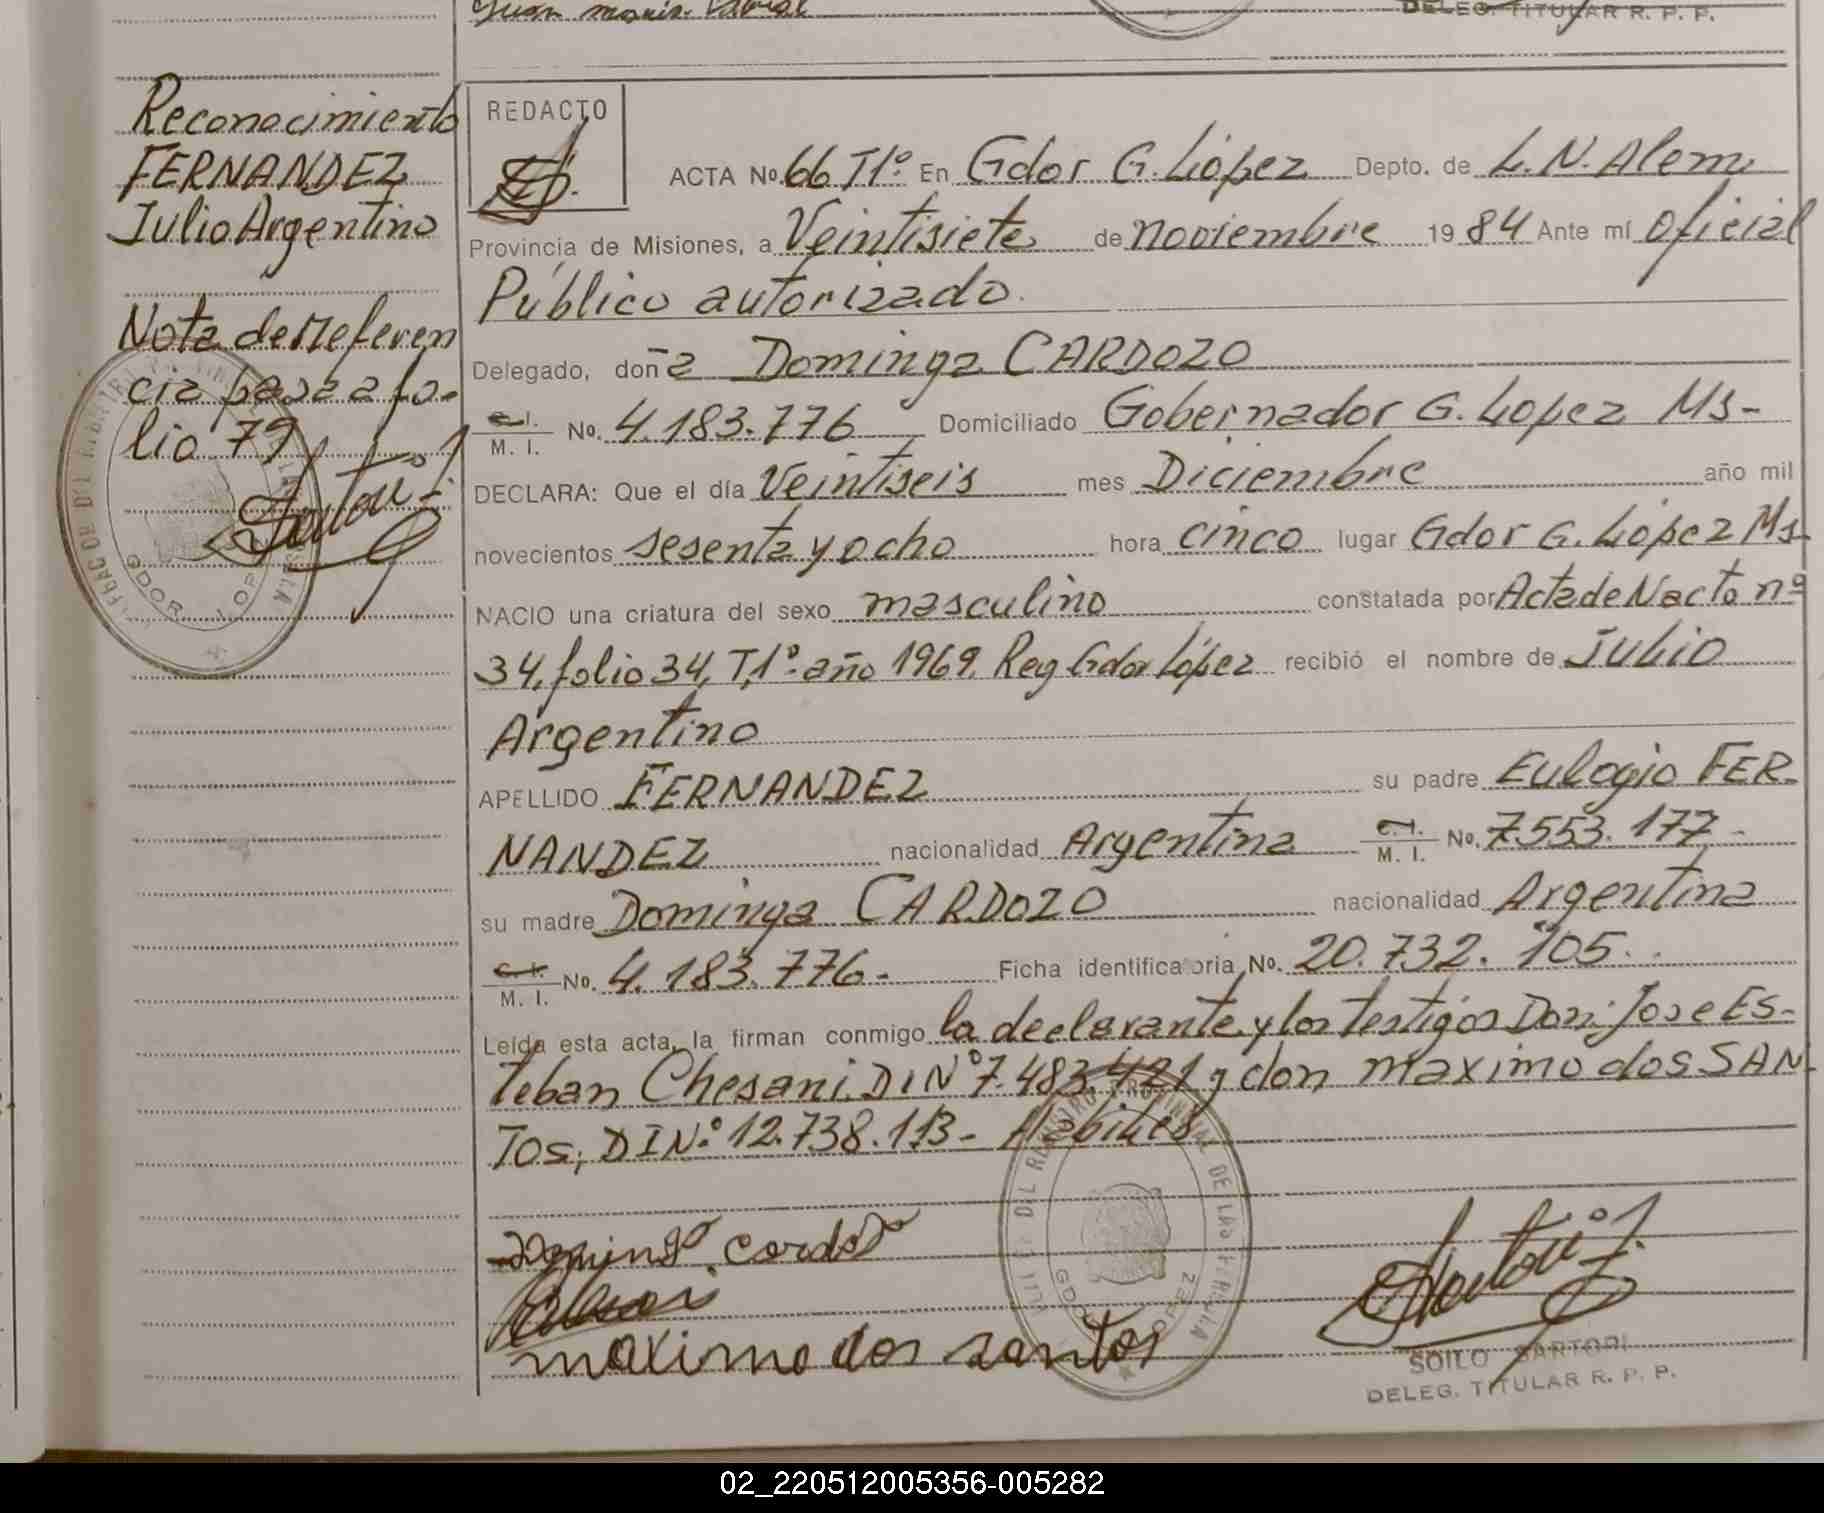 Juan
DELEG. TITULAR R. P. P.
Reconocimiento
FERNANDEZ
Julio Argentino
Nota de Referen
cia pasa a fo-
lio 79
REDACTO
ACTA No. 66 T1º En Gdor G. López Depto. de L. N. Alem
Provincia de Misiones, a Veintisiete de noviembre 1984 Ante mí Oficial
Público autorizado.
Delegado, doña Dominga CARDOZO
C. I.
M. I. No. 4.183.776 Domiciliado Gobernador G. Lopez Ms-
DECLARA: Que el día Veintiseis mes Diciembre año mil
novecientos sesenta y ocho hora cinco lugar Gdor G. López Ms-
NACIO una criatura del sexo masculino constatada por Acta de Nacto nº
34, folio 34, T,1º- año 1969, Reg Gdor López recibió el nombre de Julio
Argentino
APELLIDO FERNANDEZ su padre Eulogio FER-
NANDEZ nacionalidad Argentina C. I.
M. I. No. 7.553.177-
su madre Dominga CARDOZO nacionalidad Argentina
C. I.
M. I. No. 4.183.776- Ficha identificatoria No. 20.732.105.
Leída esta acta, la firman conmigo la declarante y los testigos Don: Jose Es-
teban Chesani, DI Nº 7.483.421 y don maximo dos SAN-
TOS, DI Nº 12.738.113- Hábiles
Dominga Cardozo
maximo dos santos
SOILO SARTORI
DELEG. TITULAR R. P. P.
02_220512005356-005282